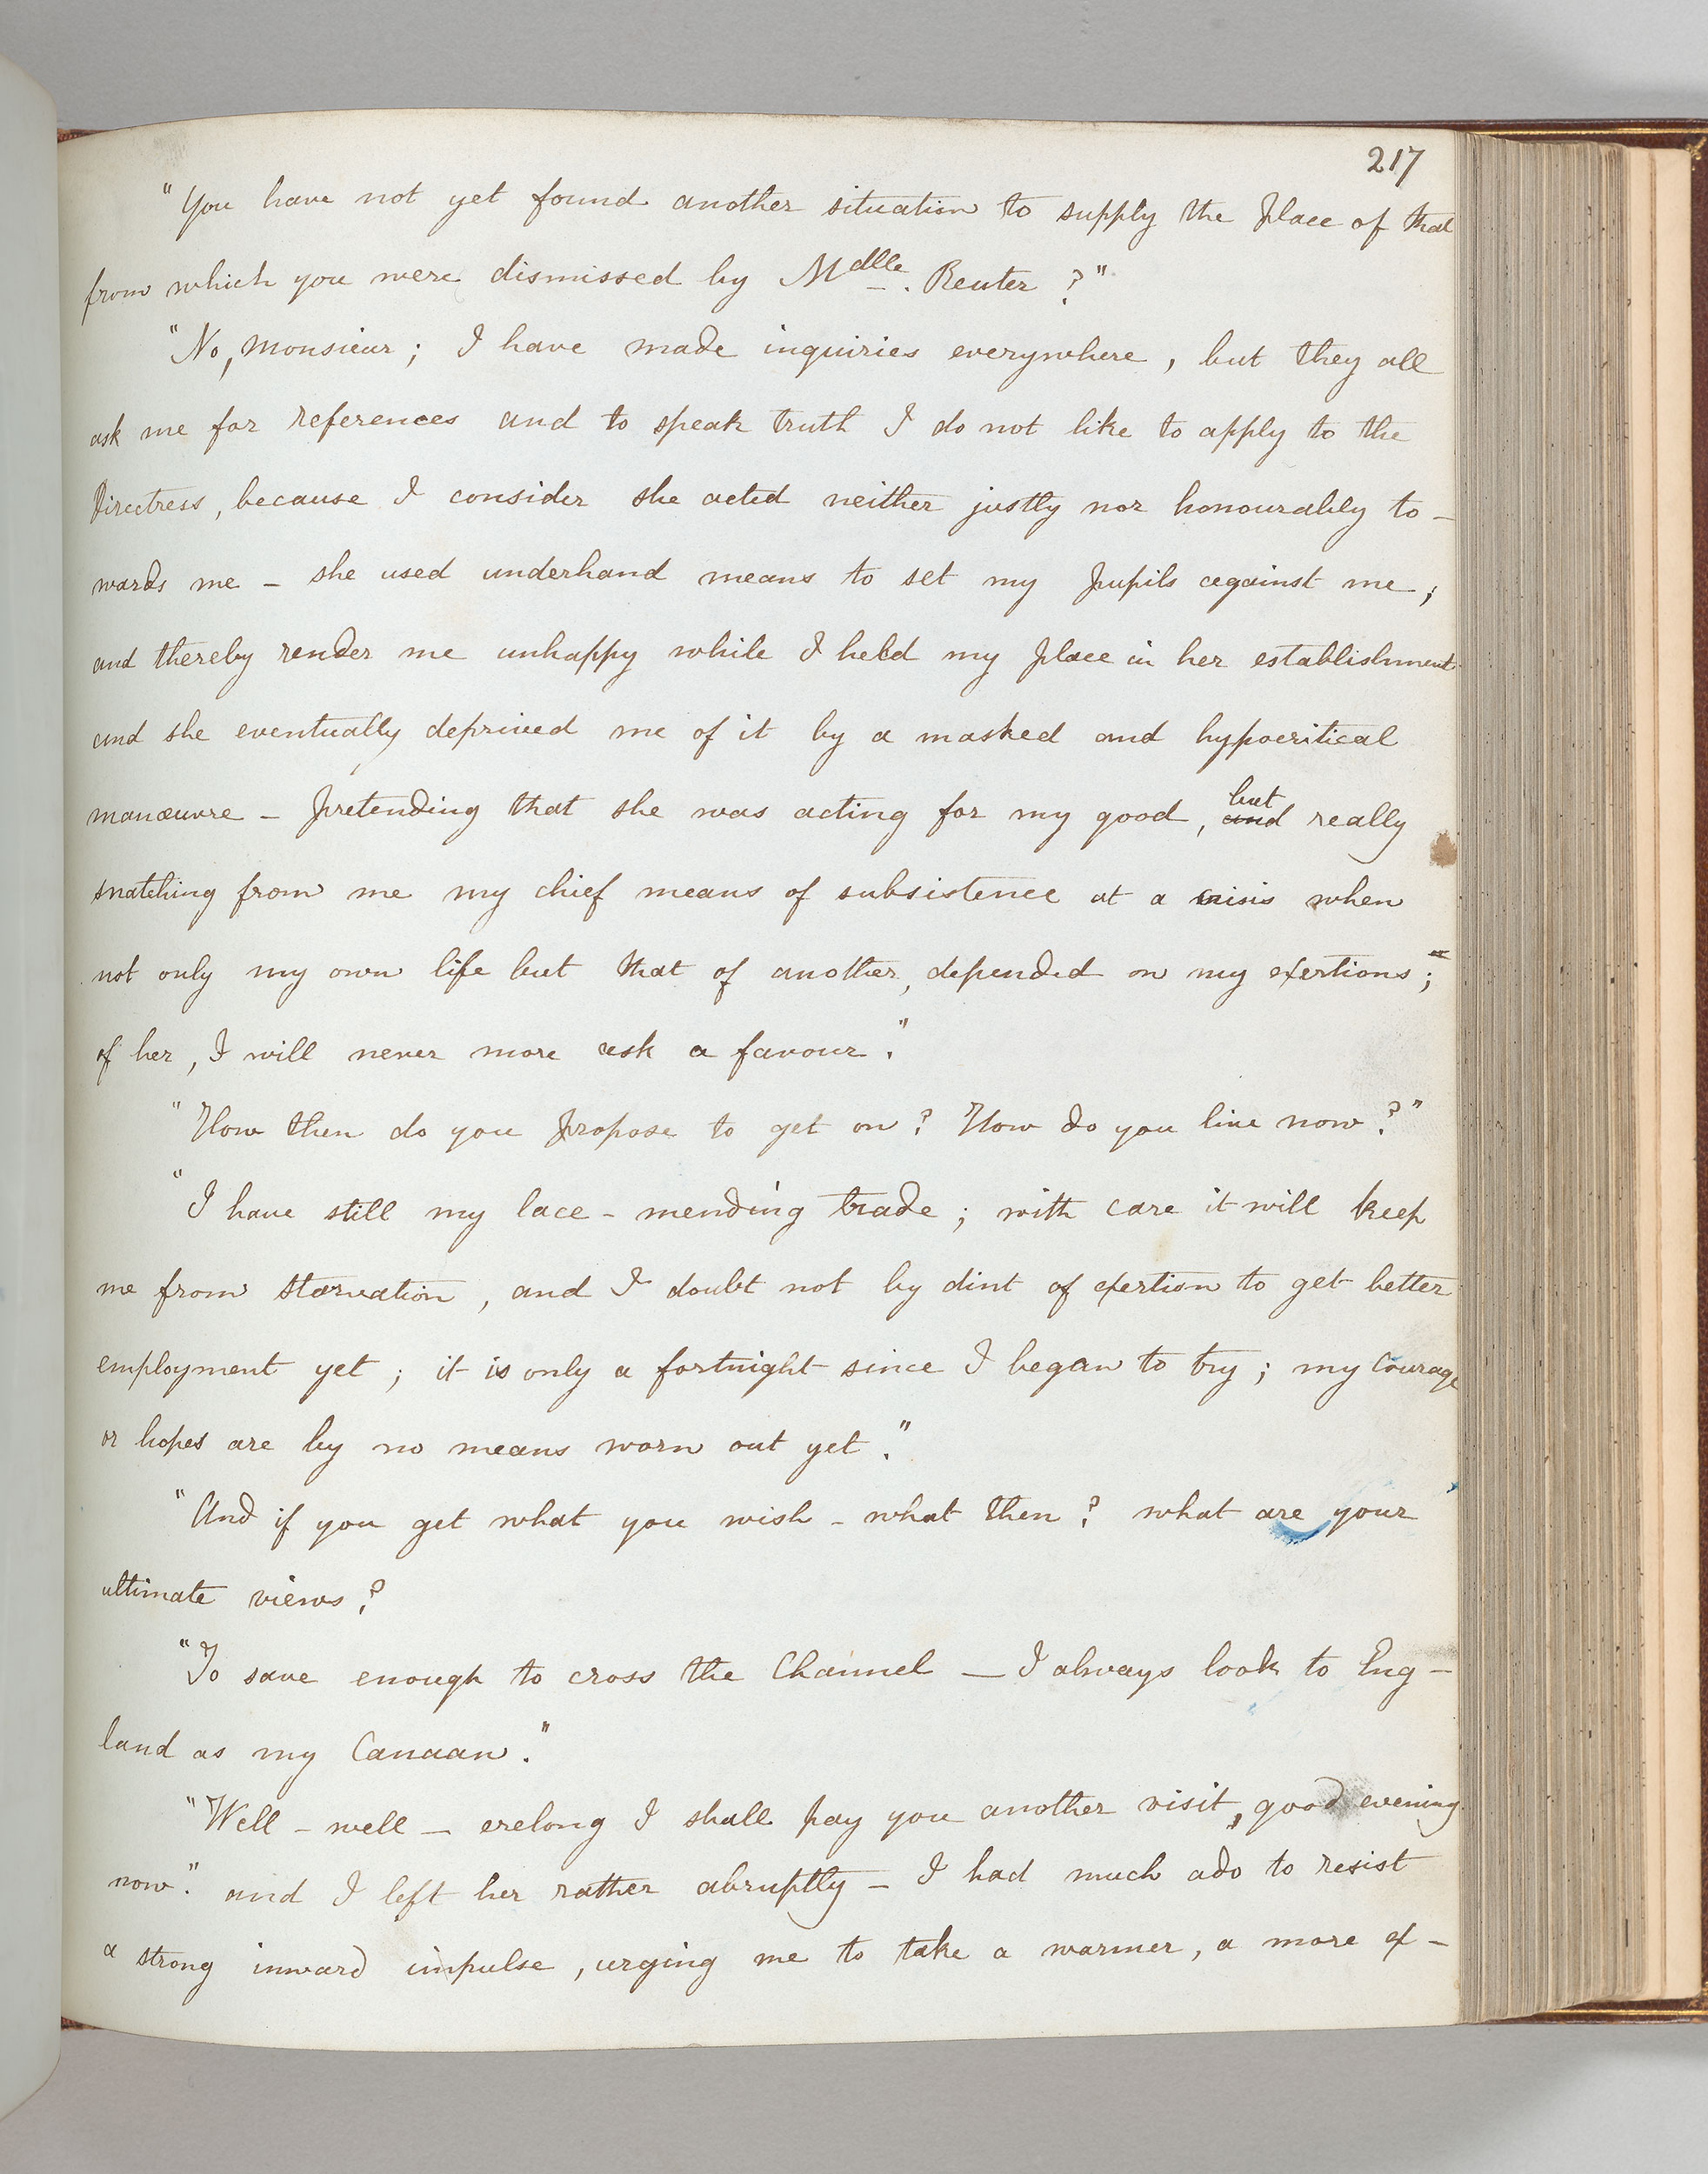 217
"You have not yet found another situation to supply the place of that
from which you were dismissed by Mdlle. Reuter?"
"No, Monsieur; I have made inquiries everywhere, but they all
ask me for references and to speak truth I do not like to apply to the
Directress, because I consider she acted neither justly nor honourably to-
wards me - she used underhand means to set my pupils against me;
and thereby render me unhappy while I held my place in her establishment
and she eventually deprived me of it by a masked and hypocritical
manœuvre - pretending that she was acting for my good, but and really
snatching from me my chief means of subsistence at a crisis when
not only my own life but that of another, depended on my exertions; -
of her, I will never more ask a favour."
"How then do you propose to get on? How do you live now?"
"I have still my lace-mending trade; with care it will keep
me from starvation, and I doubt not by dint of exertion to get better
employment yet; it is only a fortnight since I began to try; my courage
or hopes are by no means worn out yet."
"And if you get what you wish - what then? what are your
ultimate views?
"To save enough to cross the Channel — I always look to Eng-
land as my Canaan."
"Well - well — erelong I shall pay you another visit, good evening
now." and I left her rather abruptly — I had much ado to resist
a strong inward impulse, urging me to take a warmer, a more ex-